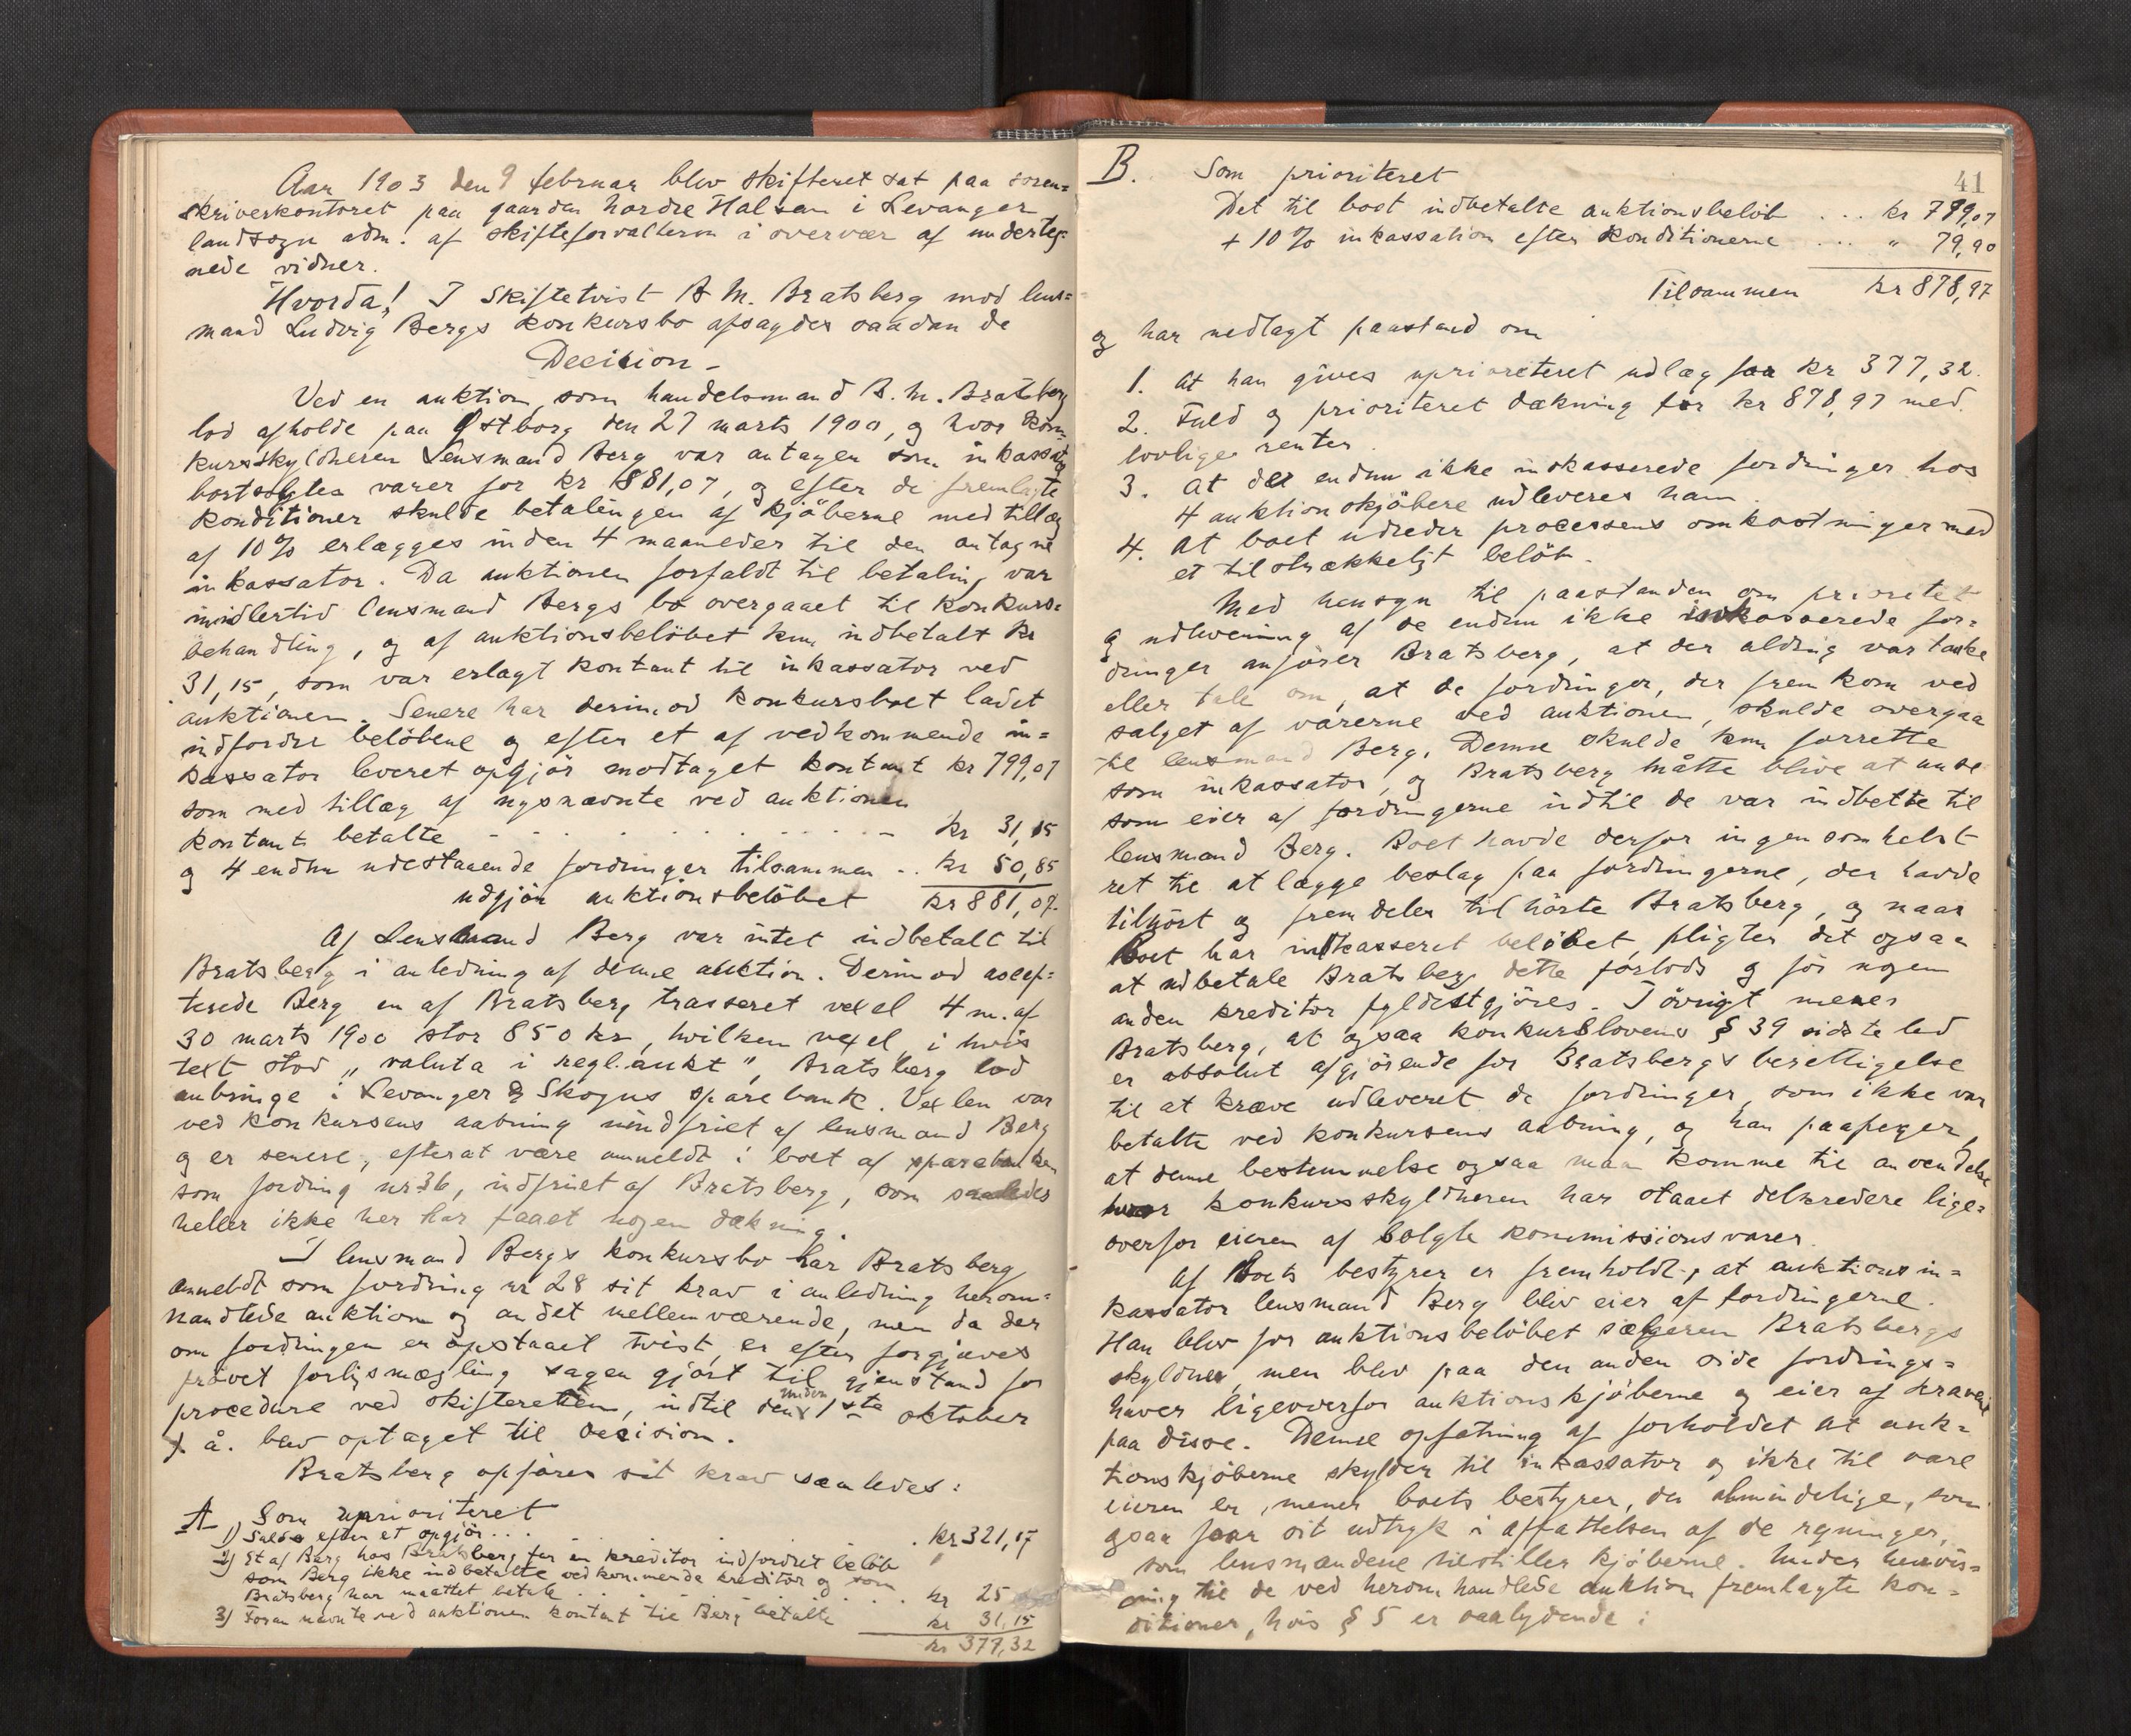 Aar 1903 den 9 februar blev skifteret sat paa soren=
skriverkontoret paa gaarden Nordre Halsan i Levanger
landsogn adm. af skifteforvalteren i overvær af underteg=
nede vidner.
Hvorda! I Skiftetvist B. M. Bratsberg mod lens=
mand Ludvig Bergs konkursbo afsagdes saadan de
Decision -
Ved en auktion, som handelsmand B. M. Bratsberg
lod afholde paa Østborg den 27 marts 1900, og hvor kon=
kursskyldneren Lensmand Berg var antagen som inkassator
bortsolgtes varer for kr 881,07, og efter de fremlagte
konditioner skulde betalingen af kjöberne med tillæg
af 10% erlægges inden 4 maaneder til den antagne
inkassator. Da auktionen forfaldt til betaling var
imidlertid lensmand Bergs bo overgaaet til konkurs=
behandling, og af auktionsbelöbet kun indbetalt kr
31,15, som var erlagt kontant til inkassator ved
auktionen. Senere har derimod konkursboet ladet
indfordre belöbene og efter et af vedkommende in=
kassator leveret opgjör modtaget kontant kr 799,07
som med tillæg af nysnævnte ved auktionen
kontant betalte - . . . . . . . . - kr 31,15
og 4 endnu udestaaende fordringer tilsammen .. kr 50,85
udgjör auktionsbelöbet kr 881,07.
Af Lensmand Berg var intet indbetalt til
Bratsberg i anledning af denne auktion. Derimod accep=
terede Berg en af Bratsberg trasseret vexel 4 m. af
30 marts 1900 stor 850 kr, hvilken vexel i hvis
text stod „valuta i regl. aukt", Bratsberg lod
anbringe i Levanger & Skogns sparebank. Vexlen var
ved konkursens aabning uindfriet af lensmand Berg
og er senere, efterat være anmeldt i boet af sparebanken
som fordring nr 36, indfriet af Bratsberg, som saaledes
heller ikke her har faaet nogen dækning.
I lensmand Bergs konkursbo har Bratsberg
anmeldt som fordring nr 28 sit krav i anledning herom=
handlede auktion og andet mellemværende, men da der
om fordringen er opstaaet tvist, er efter forgjæves
prövet forligsmægling sagen gjort til gjenstand for
procedure ved skifteretten, indtil den under 1ste oktober
f. å. blev optaget til decision.
Bratsberg opförer sit krav saaledes:
A. Som uprioriteret
1) Saldo efter et opgjör . . . . . . . kr 321,17
2) Et af Berg hos Bratsberg for en kreditor indfordret belöb
som Berg ikke indbetalte vedkommende kreditor og som
Bratsberg har maattet betale . . . . . . . kr 25
3) Foran nævnte ved auktionen kontant til Berg betalte kr 31,15
kr 377,32
41
B. Som prioriteret
Det til boet indbetalte auktionsbelöb . . . kr 799,07
+ 10% inkassation efter konditionerne . . . „ 79,90
Tilsammen kr 878,97
og har nedlagt paastand om
1. At han gives uprioriteret udlæg for kr 377,32.
2. Fuld og prioriteret dækning for kr 878,97 med
lovlige renter.
3. At de endnu ikke inkasserede fordringer hos
4 auktionskjöbere udleveres ham.
4. At boet udreder processens omkostninger med
et tilstrækkeligt belöb.
Med hensyn til paastanden om prioritet
og udlevering af de endnu ikke inkasserede for=
dringer anförer Bratsberg, at der aldrig var tanke
eller tale om, at de fordringer, der fremkom ved
salget af varerne ved auktionen, skulde overgaa
til lensmand Berg. Denne skulde kun forrette
som inkassator, og Bratsberg måtte blive at anse
som eier af fordringerne indtil de var indbetlte til
lensmand Berg. Boet havde derfor ingensomhelst
ret til at lægge beslag paa fordringerne, der havde
tilhört og fremdeles tilhörte Bratsberg, og naar
Boet har indkasseret belöbet, pligter det ogsaa
at udbetale Bratsberg dette forlods og för nogen
anden kreditor fyldestgjöres. I övrigt mener
Bratsberg, at ogsaa konkurslovens § 39 sidste led
er absolut afgjörende for Bratsbergs berettigelse
til at kræve udleveret de fordringer, som ikke var
betalte ved konkursens aabning, og han paapeger,
at denne bestemmelse ogsaa maa komme til anvendelse
hvor konkursskyldneren har staaet delkredere lige=
overfor eieren af solgte kommissionsvarer.
Af Boets bestyrer er fremholdt, at auktionsin=
kassator lensmand Berg blev eier af fordringerne.
Han blev for auktionsbelöbet sælgeren Bratsbergs
skyldner, men blev paa den anden side fordrings=
haver ligeoverfor auktionskjöberne og eier af kravene
paa disse. Denne opfatning af forholdet at auk=
tionskjöberne skylder til inkassator og ikke til vare
eieren er, mener boets bestyrer, den almindelige, som
ogsaa faar sit udtryk i affattelsen af de regninger,
som lensmændene tilstiller kjöberne. Under henvis=
ning til de ved heromhandlede auktion fremlagte kon=
ditioner, hvis § 5 er saalydende: